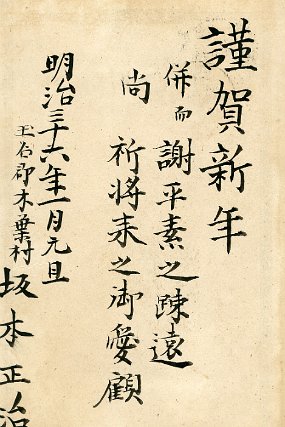 謹賀新年
併而謝平素之疎遠
尚祈将来之御愛顧
明治三十六年一月元旦
玉名郡木葉村
坂本正治